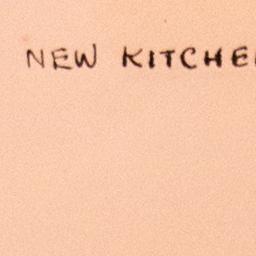 NEW KITCHE